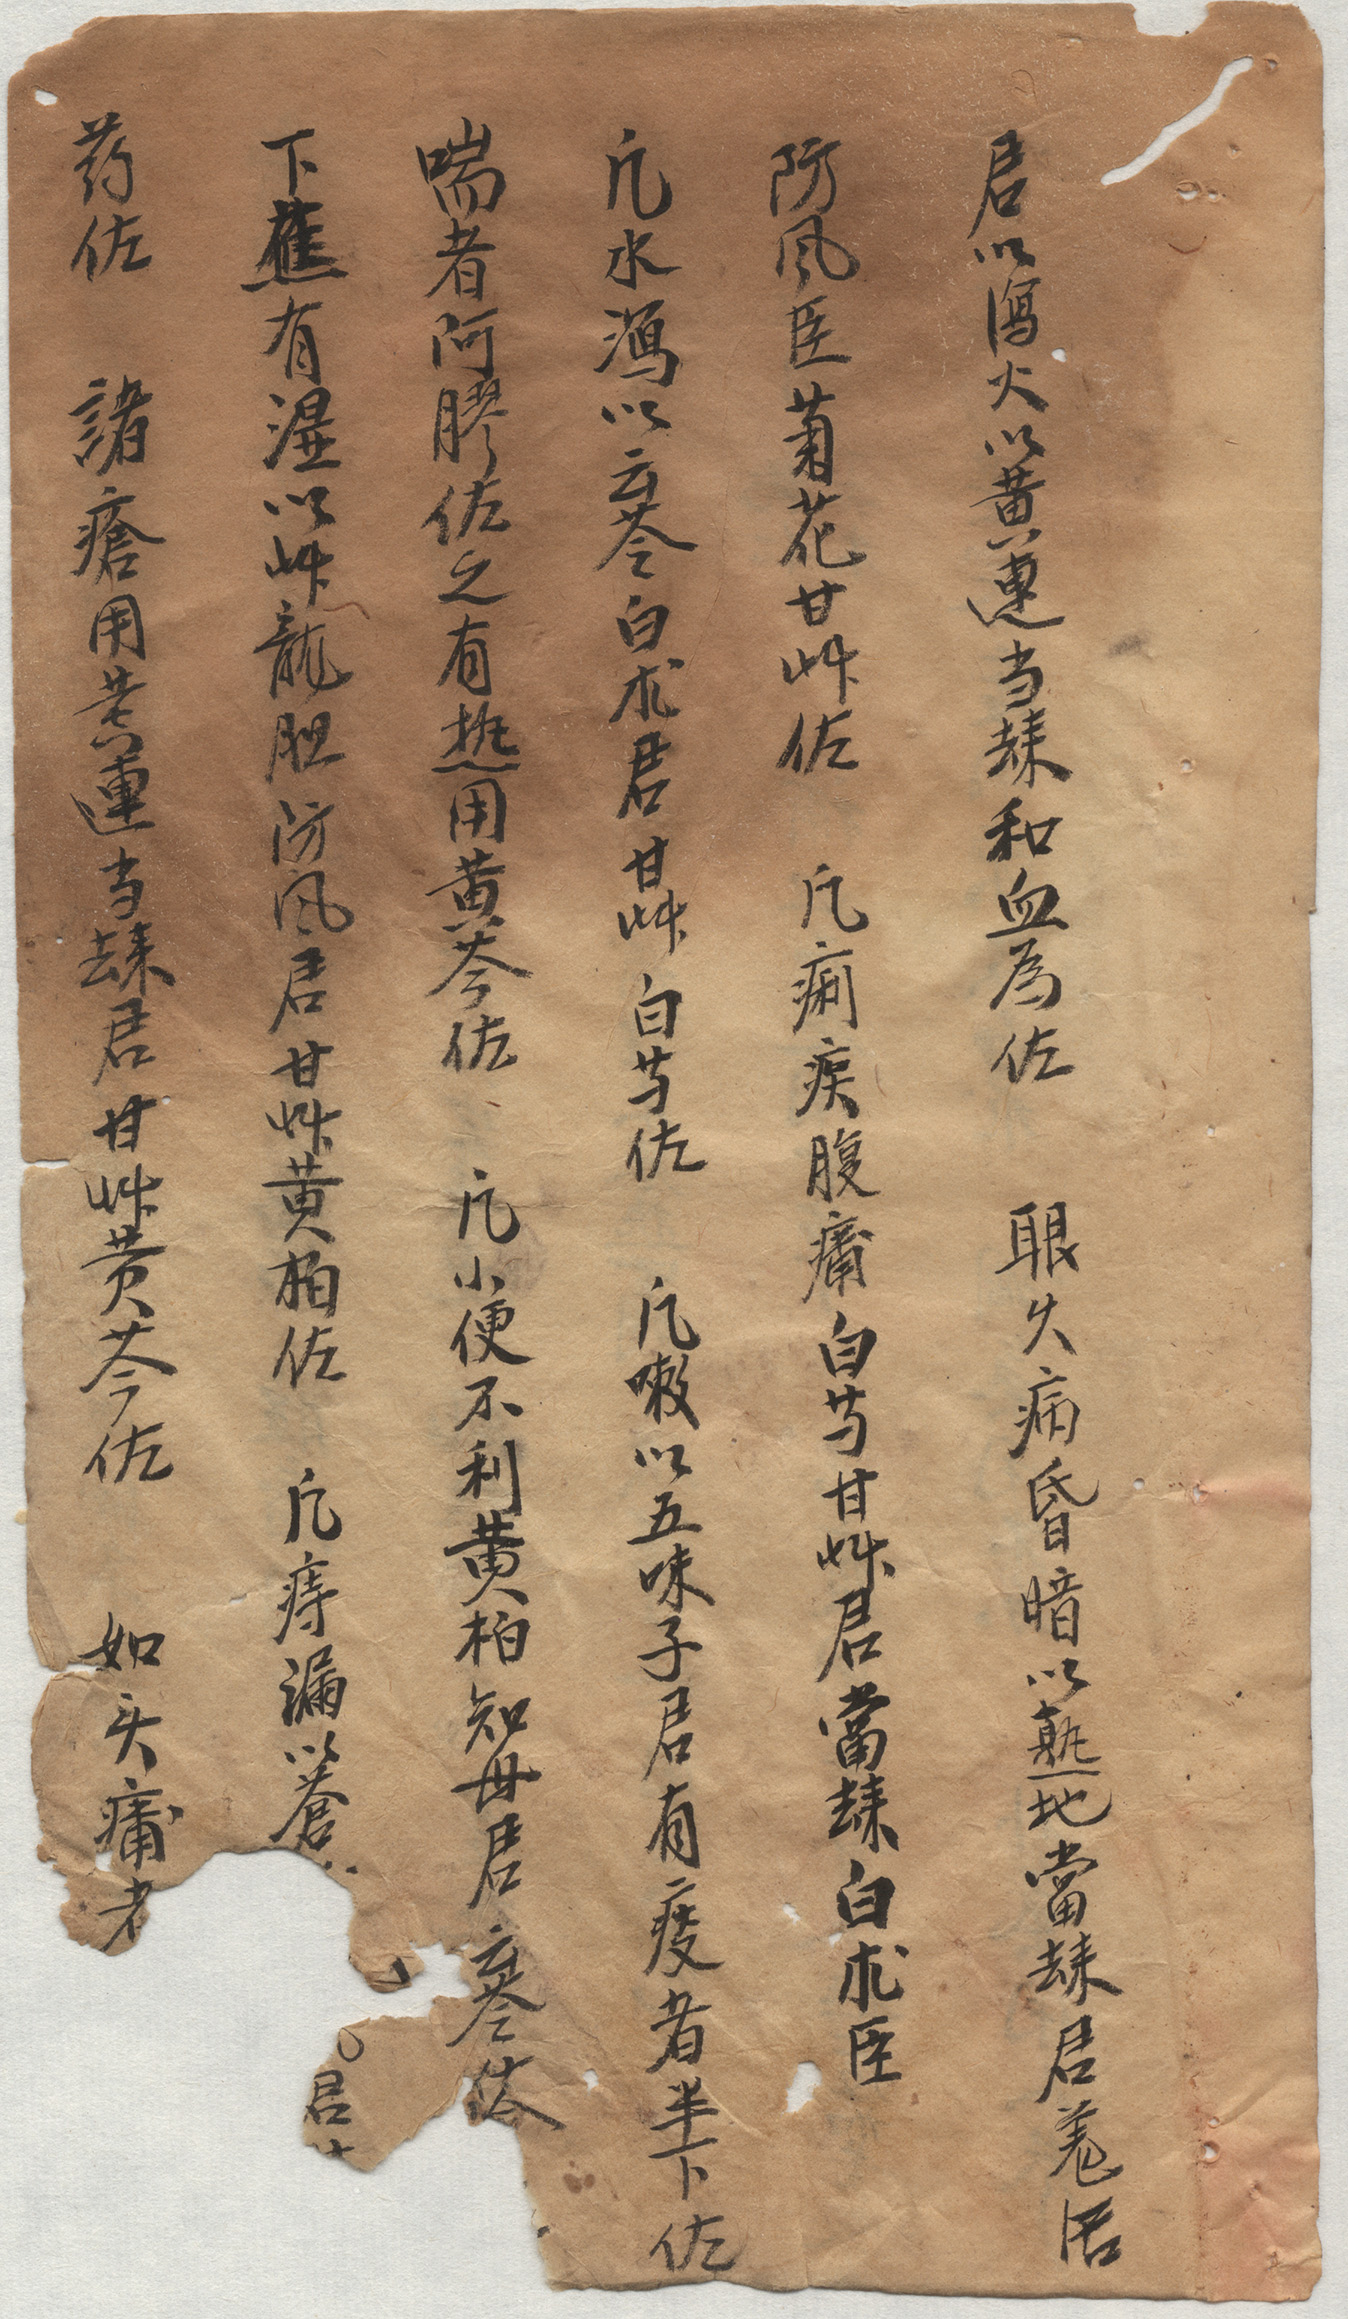 君以瀉火以黄連当歸和血為佐　眼久病昏暗以熟地當歸君羌活
防风臣菊花甘艸佐　凡痢疾腹痛白芍甘艸君當歸白术臣
凡水瀉以云苓白术君甘艸白芍佐　凡嗽以五味子君有痰者半下佐
喘者阿膠佐之有热用黄芩佐　凡小便不利黄柏知母君云苓佐
下蕉有濕以艸龍胆防风君甘艸黄柏佐　凡痔漏以蒼　君
药佐　諸瘡用黄連当歸君甘艸黄芩佐　如头痛者